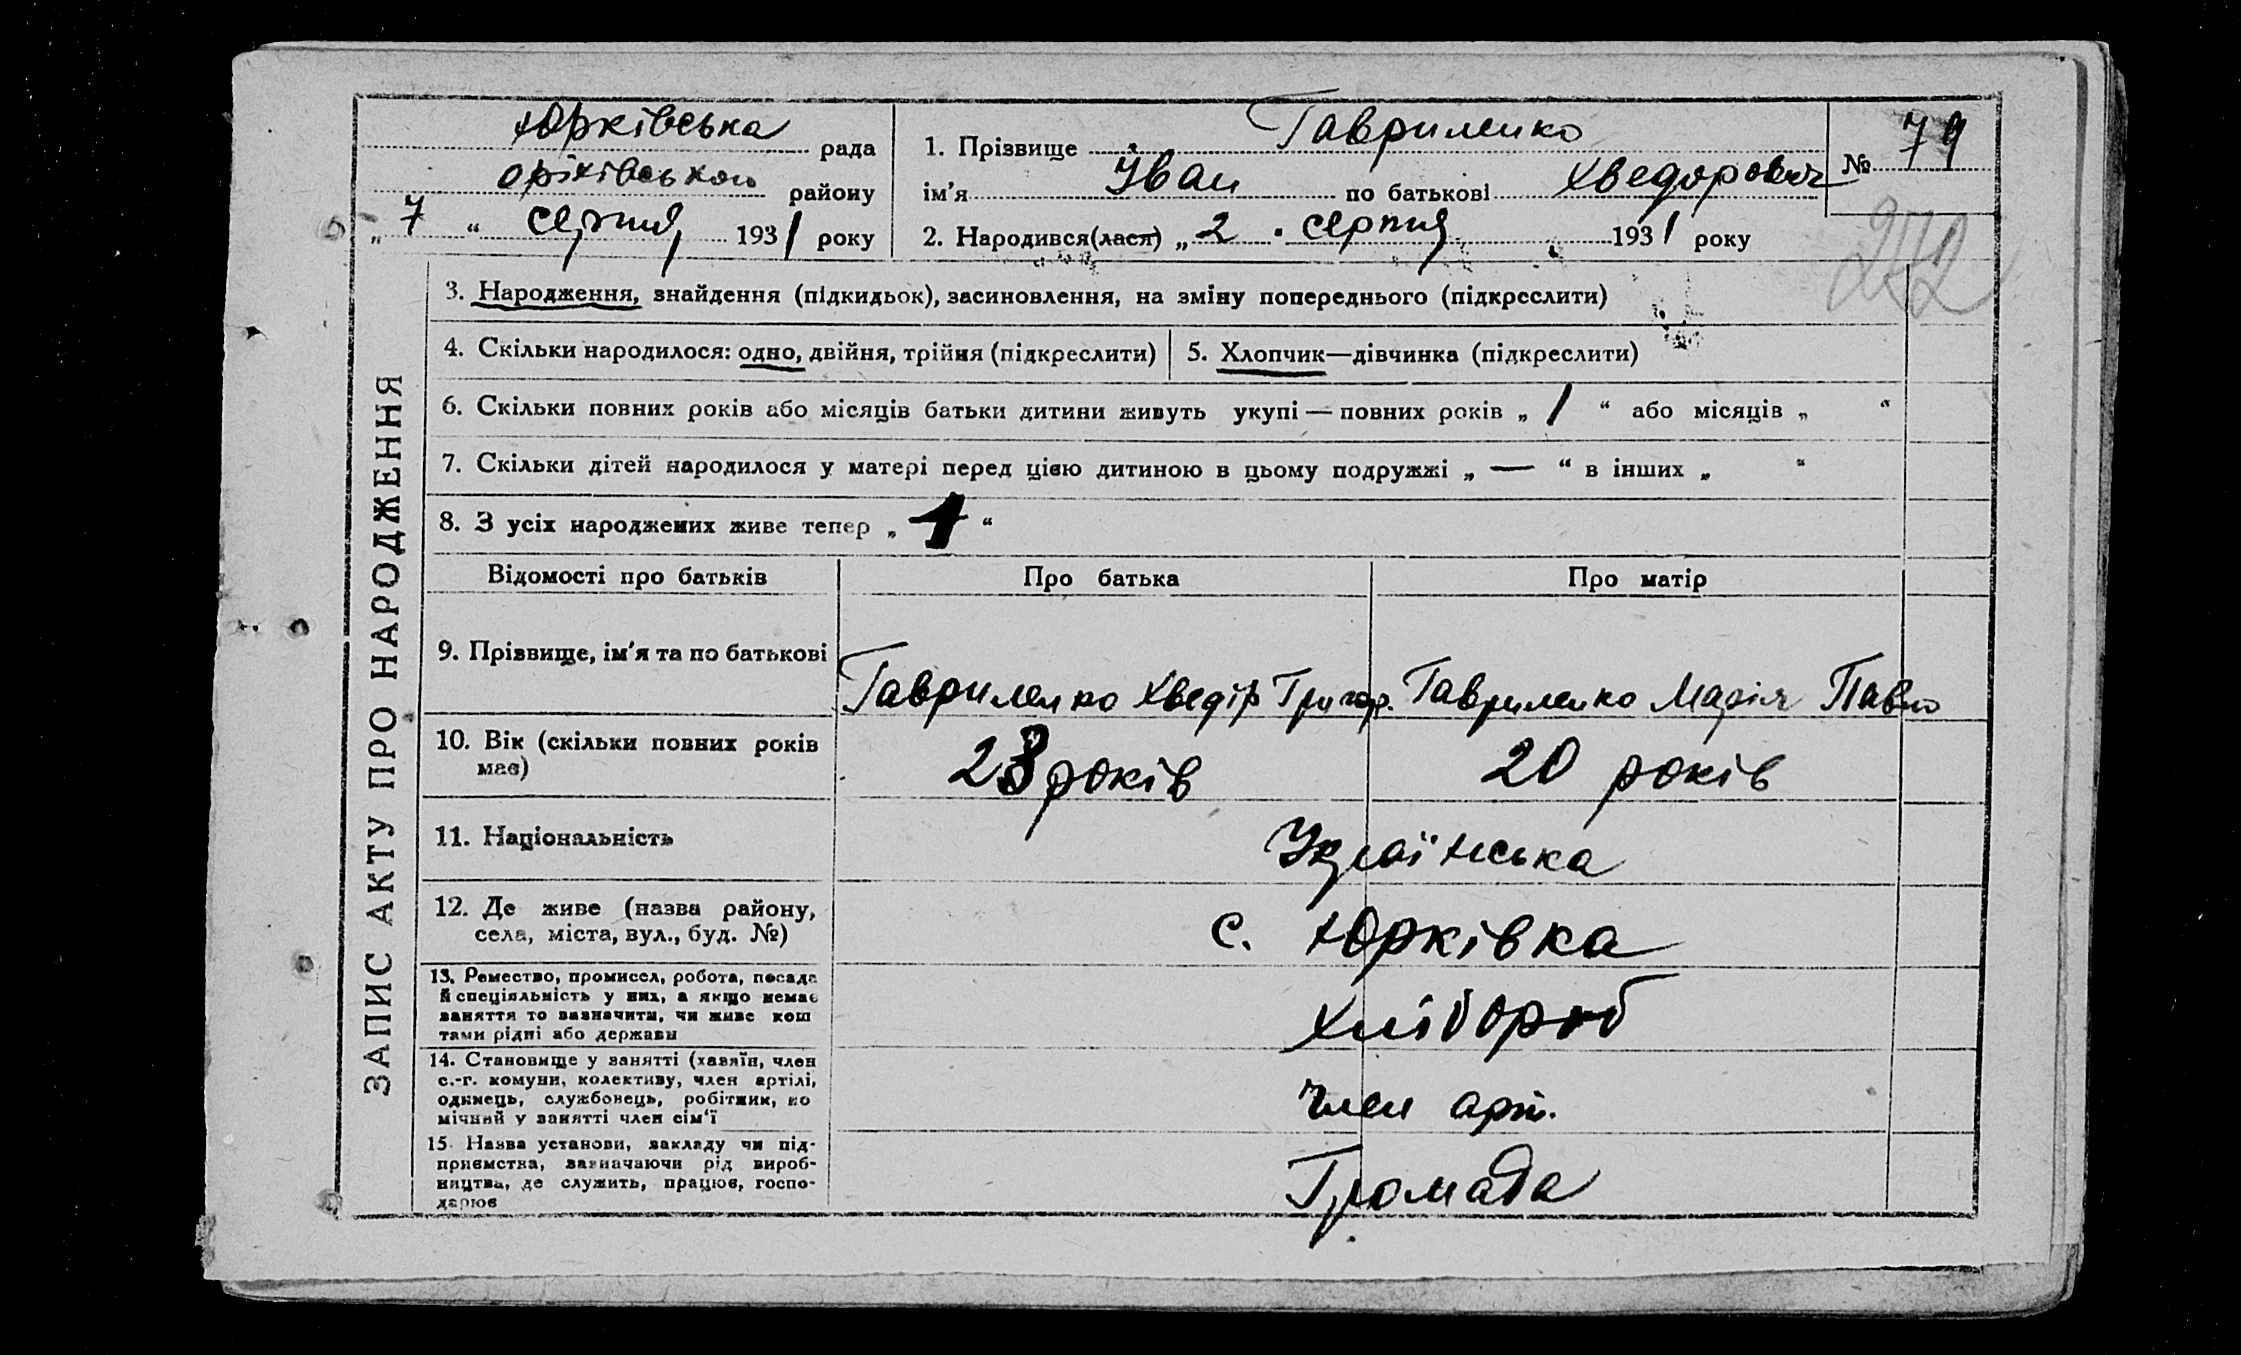 Юрківська рада
Оріхівського району
„ 7 “ серпня 1931 року
1. Прізвище Гавриленко
ім’я Іван по батькові Хведорович
2. Народився(лася) „ 2 . серпня 1931 року
№ 79
272
ЗАПИС АКТУ ПРО НАРОДЖЕННЯ
3. Народження, знайдення (підкидьок), засиновлення, на зміну попереднього (підкреслити)
4. Скільки народилося: одно, двійня, трійня (підкреслити)
5. Хлопчик—дівчинка (підкреслити)
6. Скільки повних років або місяців батьки дитини живуть укупі — повних років „ 1 “ або місяців „ “
7. Скільки дітей народилося у матері перед цією дитиною в цьому подружжі „ — “ в інших „ “
8. З усіх народжених живе тепер „ 1 “
Відомості про батьків Про батька Про матір
9. Прізвище, ім’я та по батькові
Гавриленко Хведір Григор. Гавриленко Марія Павло
10. Вік (скільки повних років
має)
23 років 20 років
11. Національність
Українська
12. Де живе (назва району,
села, міста, вул., буд. №)
с. Юрківка
13. Ремество, промисел, робота, посада
й спеціяльність у них, а якщо немає
заняття то зазначити, чи живе кош
тами рідні або держави
Хлібороб
14. Становище у занятті (хазяїн, член
с.-г. комуни, колективу, член артілі,
одинець, службовець, робітник, по
мічний у занятті член сім’ї
член арт.
15. Назва установи, закладу чи під-
приємства, зазначаючи рід вироб-
ництва, де служить, працює, госпо-
дарює
Громада